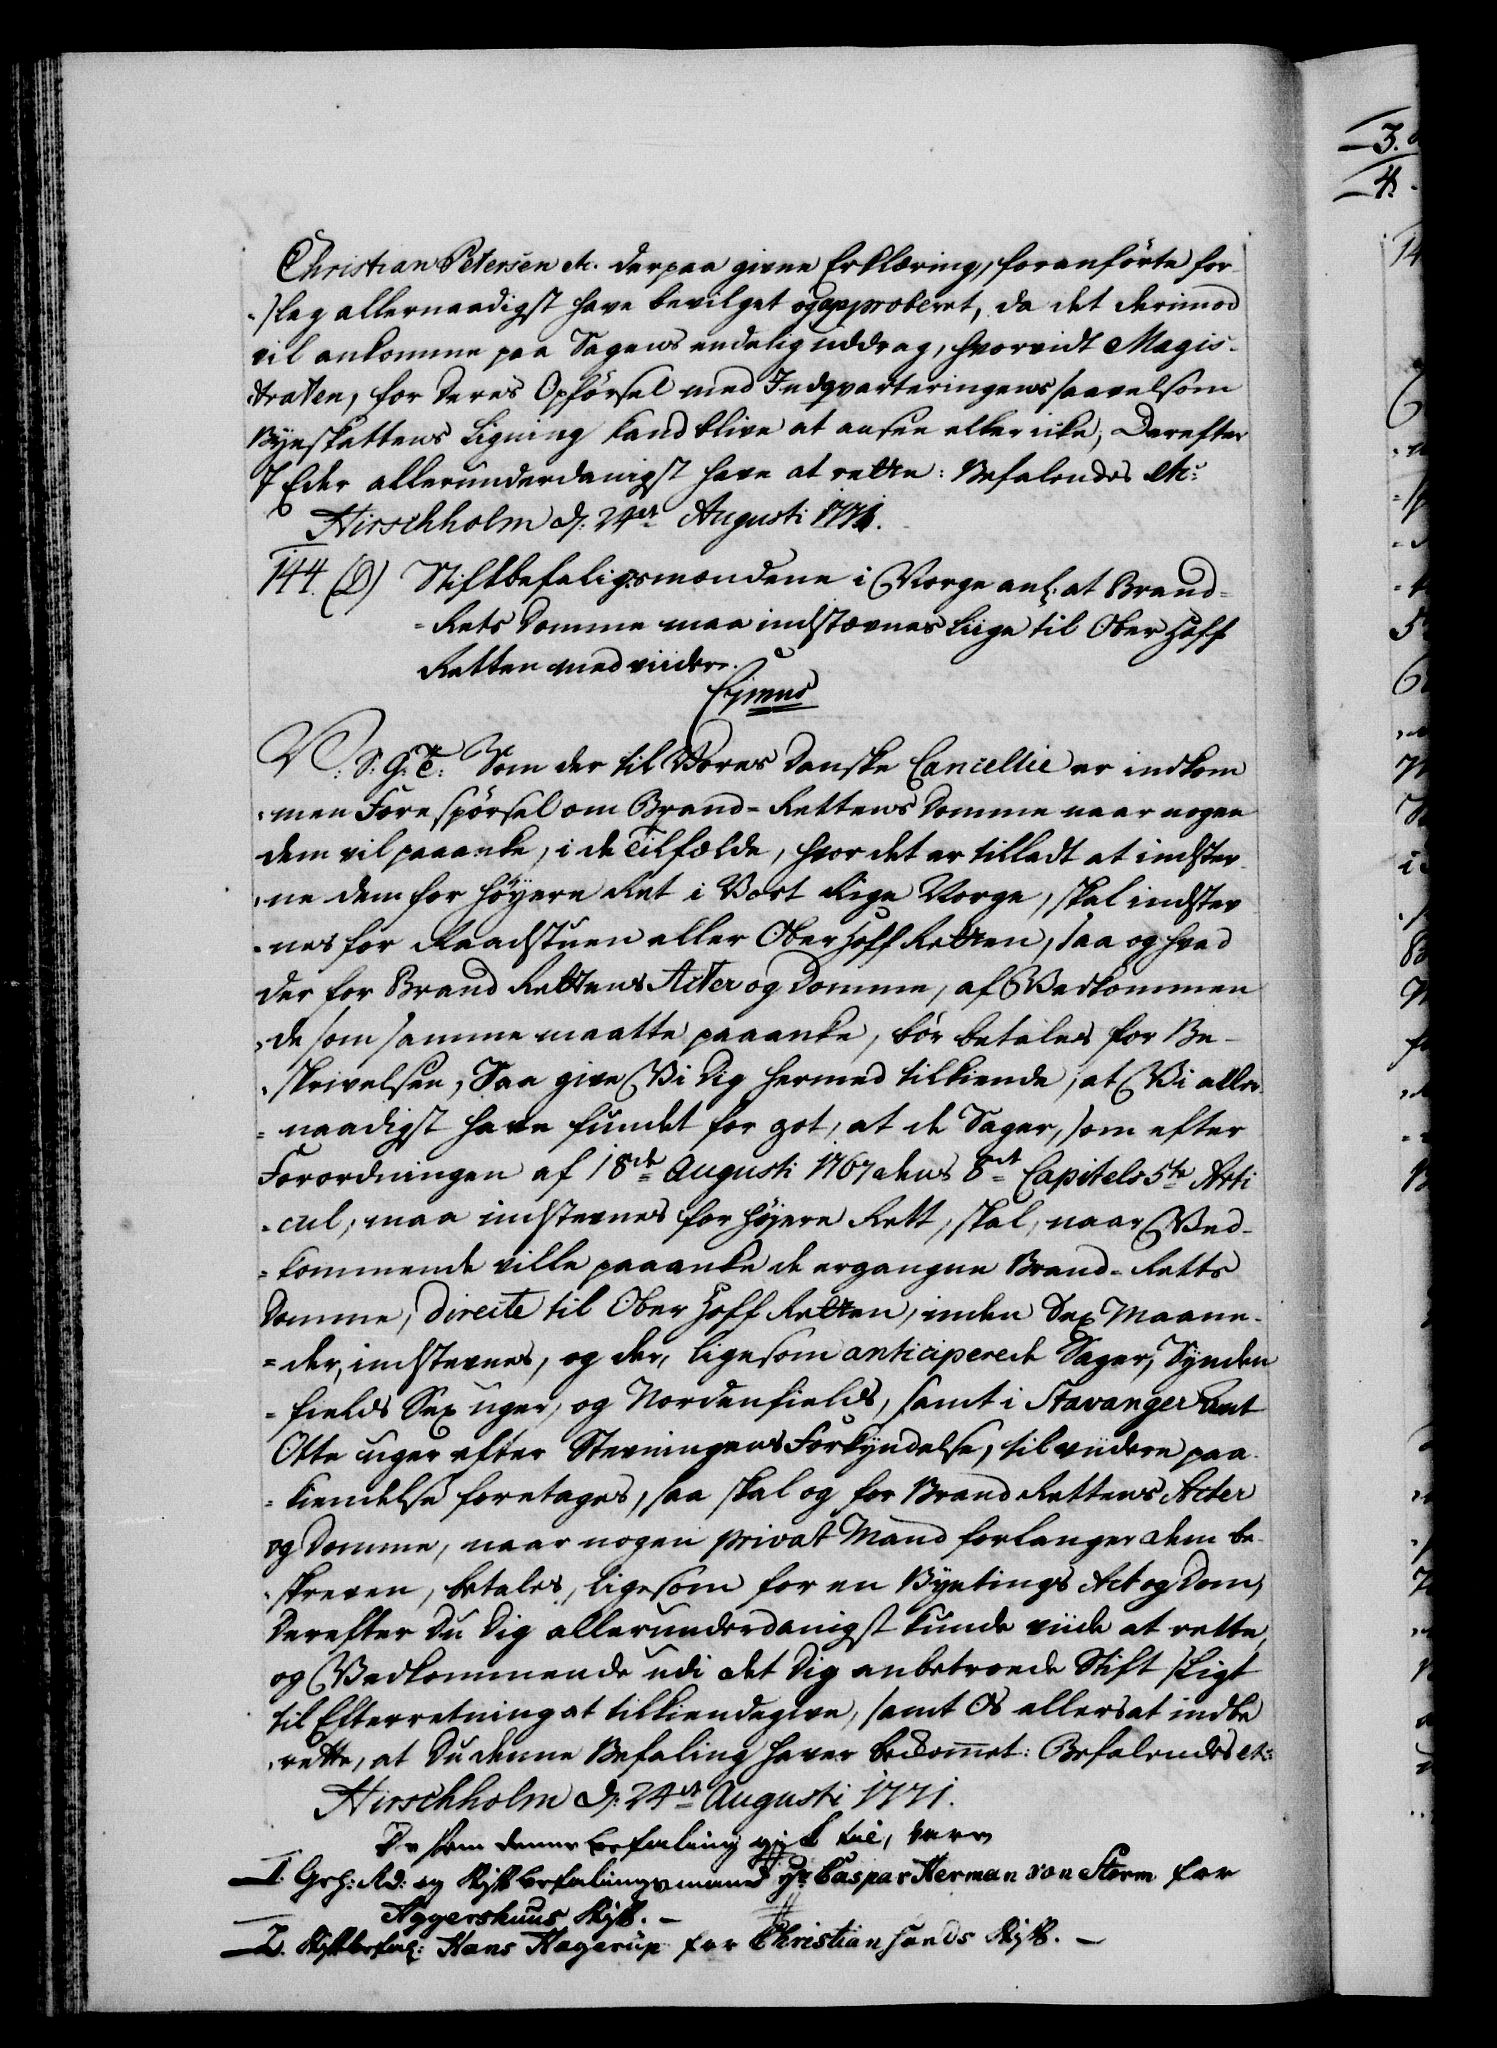 Christian Petersen etc. derpaa givne Erklæring, foranførte for-
-slag allernaadigst have bevilget og approberet, da det derimod
vil ankomme paa Sagens endelig uddrag, hvorvidt Magis-
-traten, for deres Opførsel med Indqvarteringens saavelsom
Byeskattens Ligning kand blive at ansee eller icke; Derefter
I Eder allerunderdanigst have at rette: Befalendes etc:
Hirschholm d: 24de Augusti 1771.
144. (D) Stiftbefaligsmændene i Norge anl: at Brand-
-Rets Domme maa indstævnes liige til Ober Hoff
Retten med viidere.
Ejmus
V: S: G: T: Som der til Vores Danske Cancellie er indkom
-men Forespørsel om Brand-Rettens Domme naar nogen
dem vil paaanke, i de Tilfælde, hvor det er tilladt at indstev-
-ne dem for høyere Ret i Vort Rige Norge, skal indstev
-nes for Raadstuen eller Ober Hoff Retten, saa og hvad
der for Brand Rettens Acter og Domme, af Vedkommen
-de som samme maatte paaanke, bør betales for Be-
-skrivelsen, Saa give Vi dig hermed tilkiende, at Vi aller-
-naadigst have fundet for got, at de Sager, som efter
Forordningen af 18de Augusti 1767 dens 8de Capitels 5te Arti
-cul, maa indstevnes for høyere Rett, skal, naar Ved-
-kommende ville paaanke de ergangne Brand-Retts
Domme, directe til Ober Hoff Retten, inden Sex Maane-
-der, indstevnes, og der, ligesom anticiperede Sager, Synden
-fields Sex uger, og Nordenfields, samt i Stavanger Amt
Otte uger efter Stevningens Forkyndelse, til viidere paa-
-kiendelse foretages, saa skal og for Brand Rettens Acter
og Domme, naar nogen privat Mand forlanger dem be-
-skreven, betales, ligesom for en Byetings Act og Dom,
Derefter Du Dig allerunderdanigst kunde viide at rette,
og Vedkommende udi det Dig anbetroede Stift sligt
til Efterretning at tilkiendegive, samt Os allers at indbe
-rette, at Du denne Befaling haver bekommet: Befalendes etc:
Hirschholm d: 24de Augusti 1771.
De som denne befaling gik til, vare
1. Geh: Rd: og Stiftbefalingsmand Hr Caspar Herman von Storm for
Aggershuus Stift. -
2. Stiftbefal: Hans Hagerup for Christiansands Stift. -
3.
4.
14